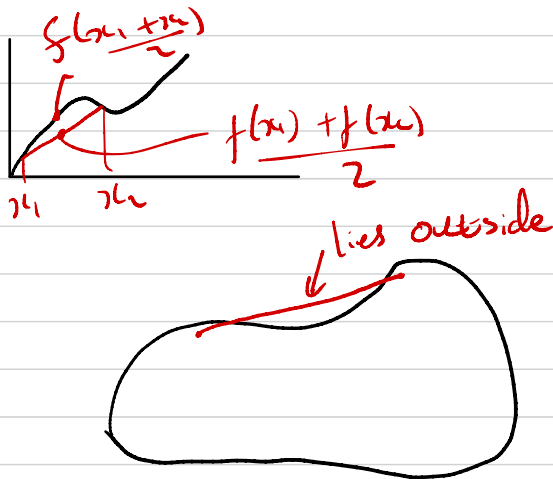 f(x₁ + x₂)
2
f(x₁) + f(x₂)
2
x₁ x₂
lies outside